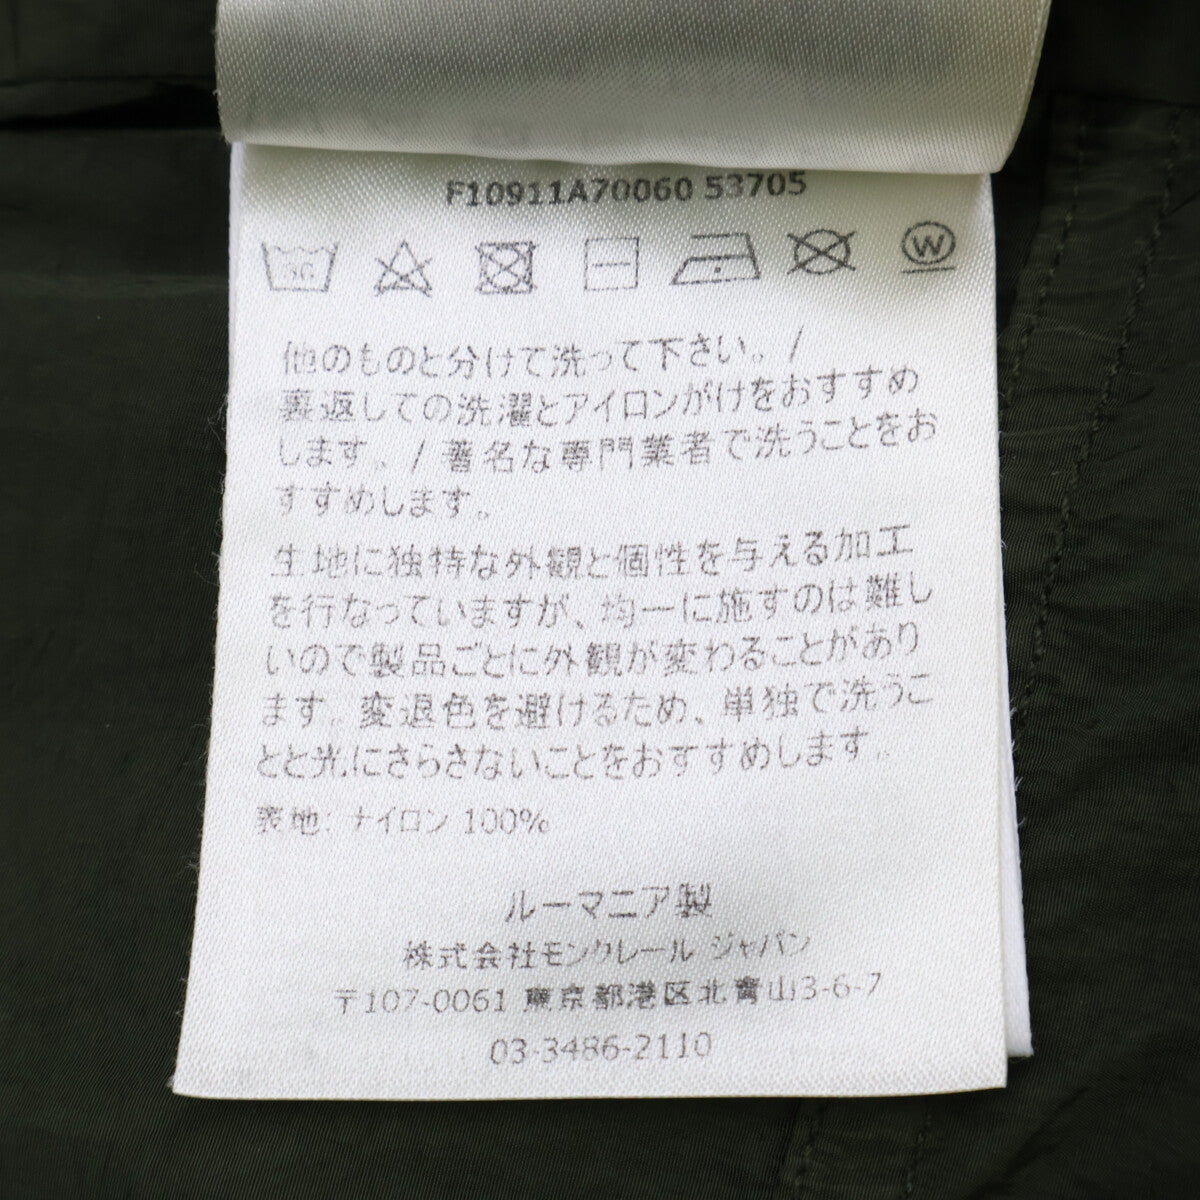 F10911A70060 53705
30
W
他のものと分けて洗って下さい。/
裏返しての洗濯とアイロンがけをおすすめ
します。/ 著名な専門業者で洗うことをお
すすめします。
生地に独特な外観と個性を与える加工
を行なっていますが、均一に施すのは難し
いので製品ごとに外観が変わることがあり
ます。変退色を避けるため、単独で洗うこ
とと光にさらさないことをおすすめします。
表地: ナイロン 100%
ルーマニア製
株式会社モンクレール ジャパン
〒107-0061 東京都港区北青山3-6-7
03-3486-2110